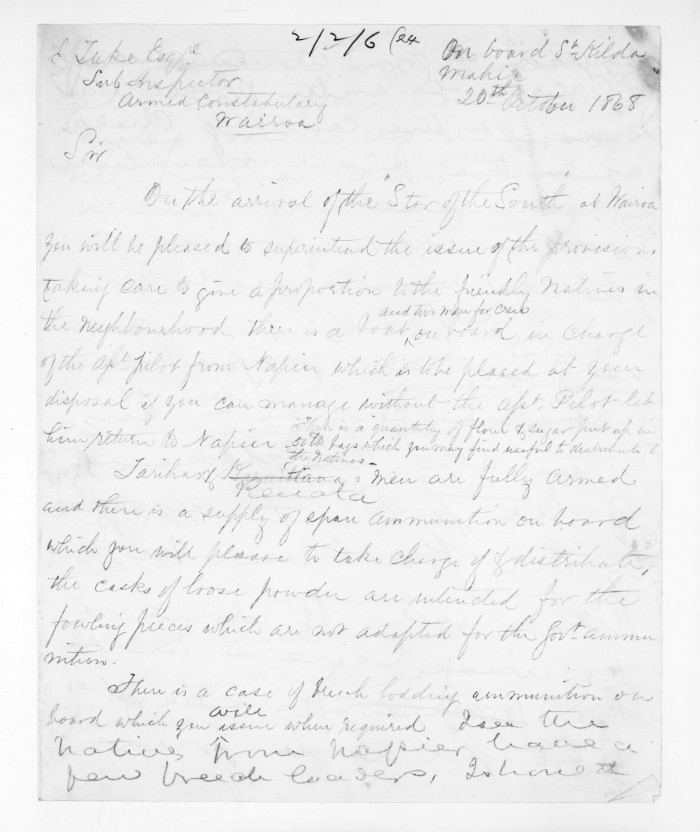 2/2/6
On board St Kilda
Tuke Esqre
Mahia
Sub Inspector
20th October 1868
Armed Constabulary
Wairoa
Sir
On the arrival of the "Star of the South" at Wairoa
you will be pleased to superintend the issue of the provisions
taking care to give a proportion to the friendly Natives in
and two men for crew
the neighbourhood there is a boat, on board in charge
of the asst. pilot from Napier which is to be placed at your
disposal if you can manage without the asst. Pilot let
him return to Napier There is a quantity of flour & sugar put up in
50 lb bags which you may find useful to distribute to
the Natives
Tarihas & men are fully armed
Renata
and there is a supply of spare ammunition on board
which you will please to take charge of & distribute,
the casks of loose powder are intended for the
fowling pieces which are not adapted for the Govt. ammu
nition.
There is a case of breech loading ammunition on
will
board which you issue when required I see the
natives from Napier have a
few breech loaders,